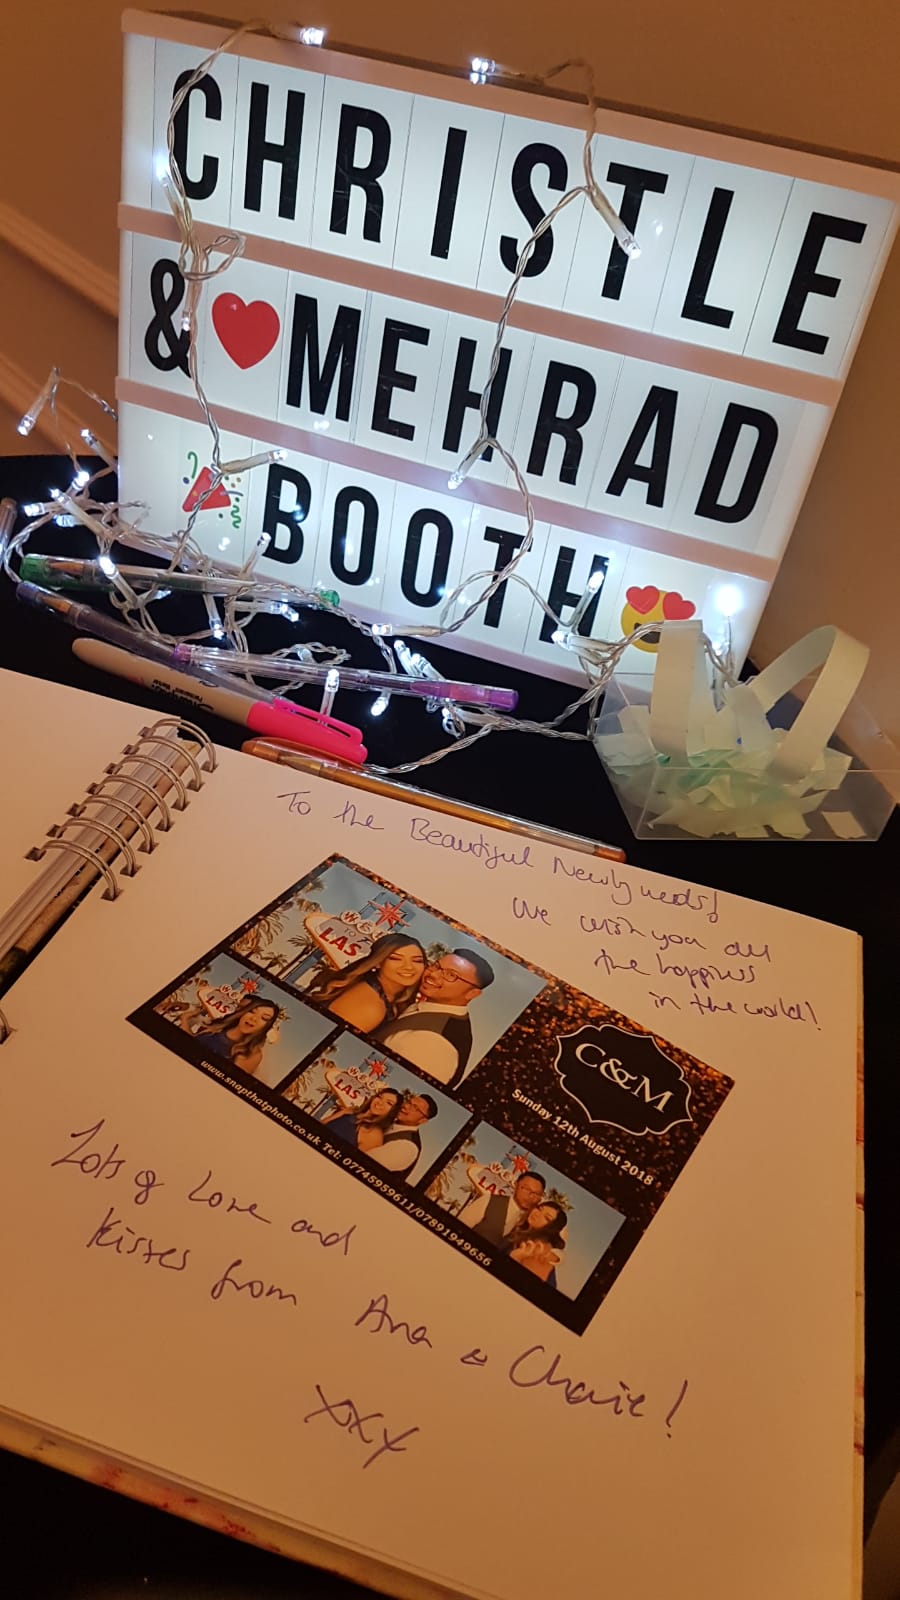 CHRISTLE
& ❤ MEHRAD
BOOTH
To the Beautiful Newlyweds!
We wish you all
the happiness
in the world!
C&M
Sunday 12th August 2018
www.snapthatphoto.co.uk Tel: 07745959611/07891949656
Lots of Love and
kisses from Ana &
XXX